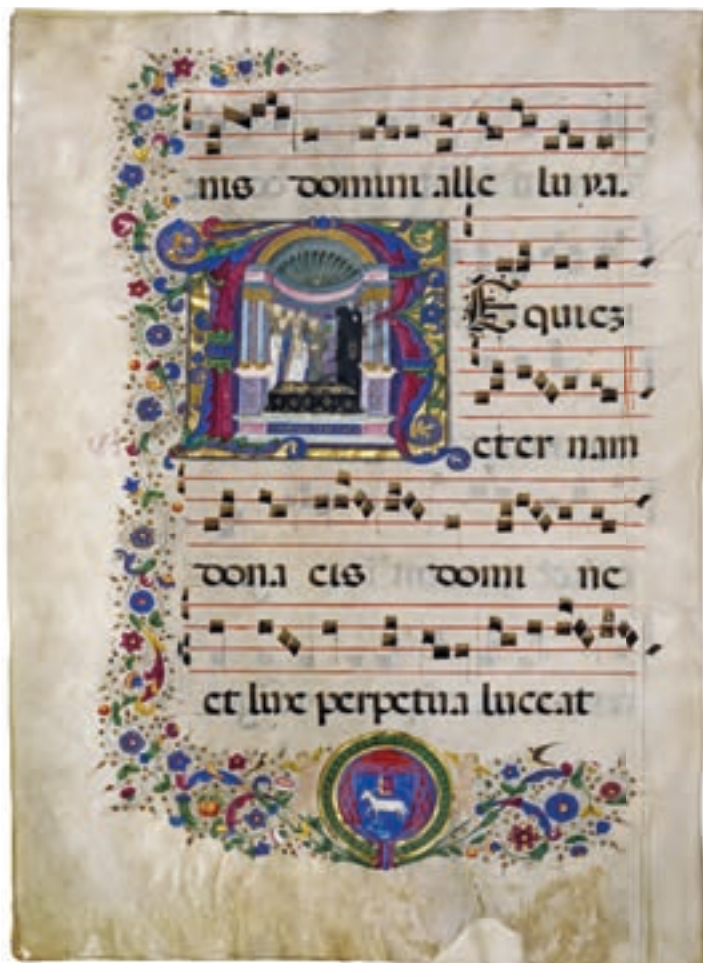 nis domini alle luya.
Requiez
eter nam
dona eis domi ne
et lux perpetua luceat